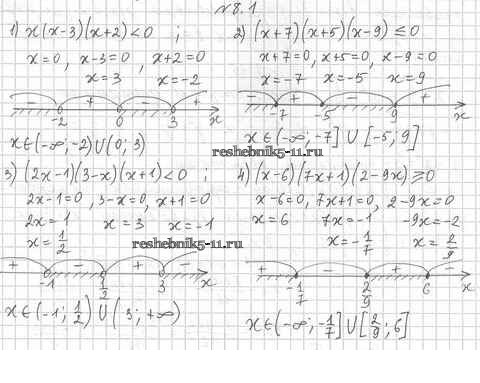 №8.1
1) x(x-3)(x+2)<0 ;
x=0, x-3=0, x+2=0
x=3 x=-2
- + - +
-2 0 3 x
x∈(-∞;-2)∪(0;3)
2) (x+7)(x+5)(x-9)≤0
x+7=0, x+5=0, x-9=0
x=-7 x=-5 x=9
- + - +
-7 -5 9 x
x∈(-∞;-7]∪[-5;9]
reshebnik5-11.ru
3) (2x-1)(3-x)(x+1)<0 ;
2x-1=0, 3-x=0, x+1=0
2x=1 x=3 x=-1
x=1/2
reshebnik5-11.ru
+ - + -
-1 1/2 3 x
x∈(-1;1/2)∪(3;+∞)
4) (x-6)(7x+1)(2-9x)≥0
x-6=0, 7x+1=0, 2-9x=0
x=6 7x=-1 -9x=-2
x=-1/7 x=2/9
+ - + -
-1/7 2/9 6 x
x∈(-∞;-1/7]∪[2/9;6]